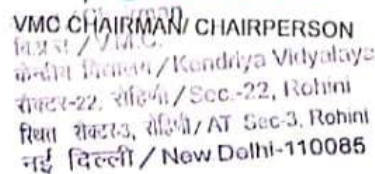 VMC CHAIRMAN/ CHAIRPERSON
वि.प्र.स / V.M.C.
केन्द्रीय विद्यालय / Kendriya Vidyalaya
सैक्टर-22, रोहिणी / Sec.-22, Rohini
स्थित सैक्टर-3, रोहिणी / AT Sec-3, Rohini
नई दिल्ली / New Delhi-110085